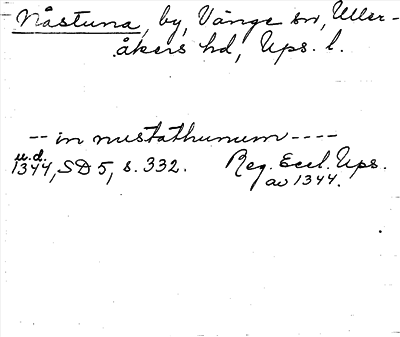 Nåstuna, by, Vänge sn, Uller-
åkers hd, Ups. l.
-- in nustathunum ----
u.d.
1344, SD 5, s. 332. Reg. Eccl. Ups.
av 1344.